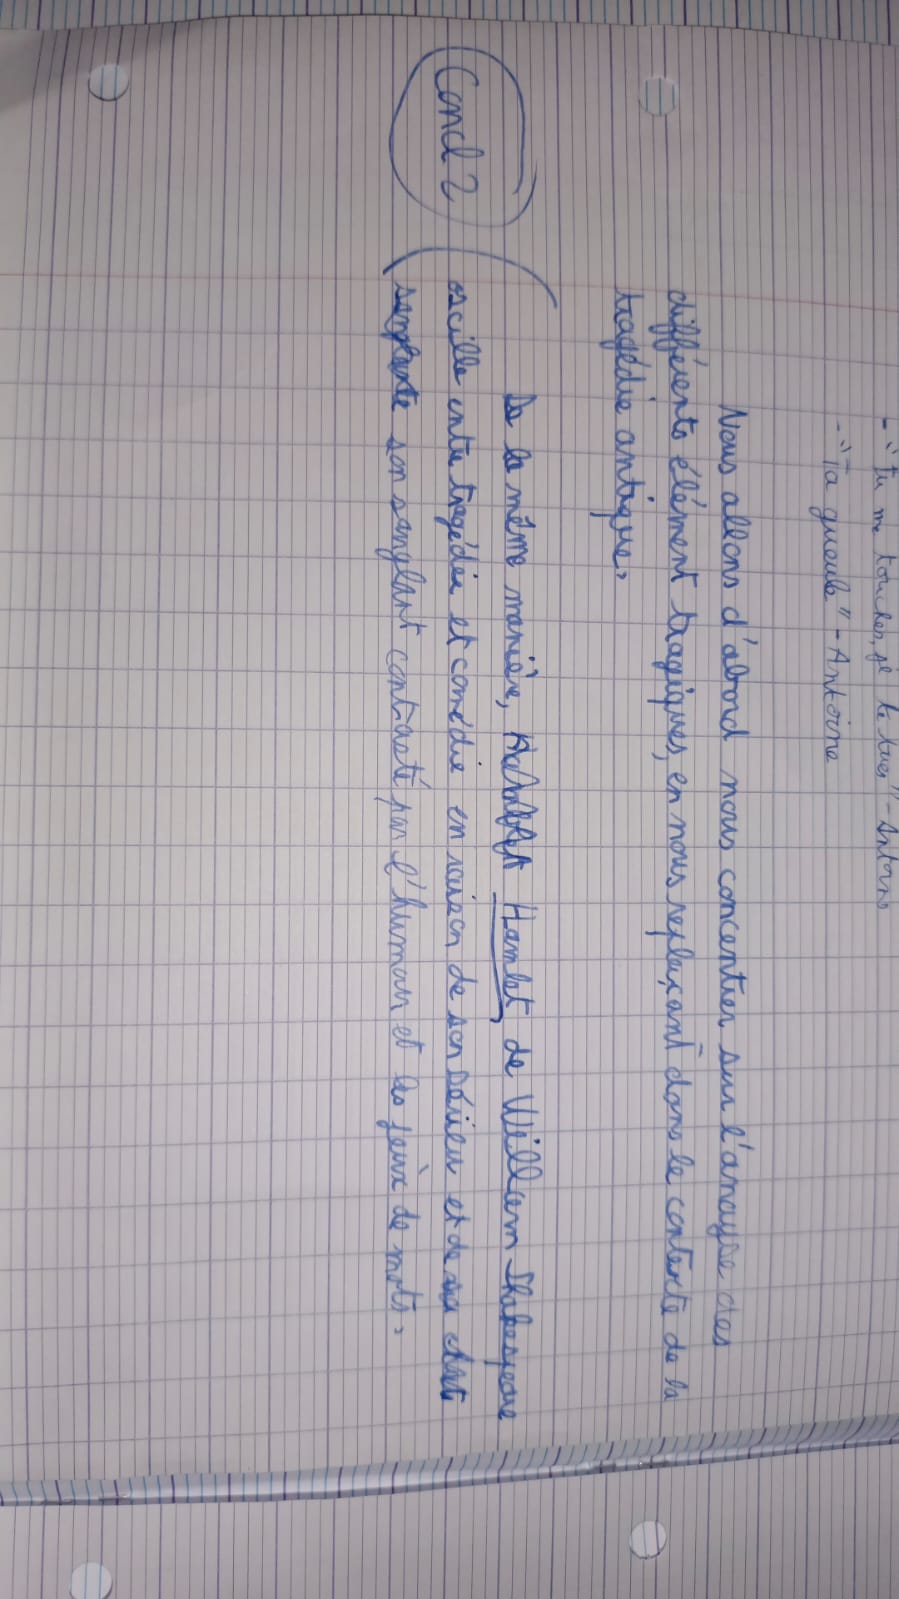 - "Tu me touches, je te tues" - Antoine
- "Ta gueule" - Antoine
Nous allons d'abord nous concentrer sur l'anayse des
différents élément tragiques, en nous replaçant dans le contexte de la
tragédie antique.
De la même manière, Hamlet de William Shakespeare
Concl 2
oscille entre tragédie et comédie en raison de son sérieu et de sa
sanglante son sanglant contrasté par l'humour et les jeux de mots.